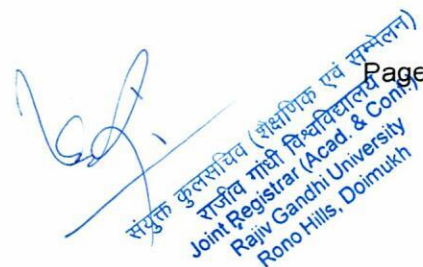 Page
संयुक्त कुलसचिव (शैक्षणिक एवं सम्मेलन)
राजीव गांधी विश्वविद्यालय
Joint Registrar (Acad. & Conf.)
Rajiv Gandhi University
Rono Hills, Doimukh